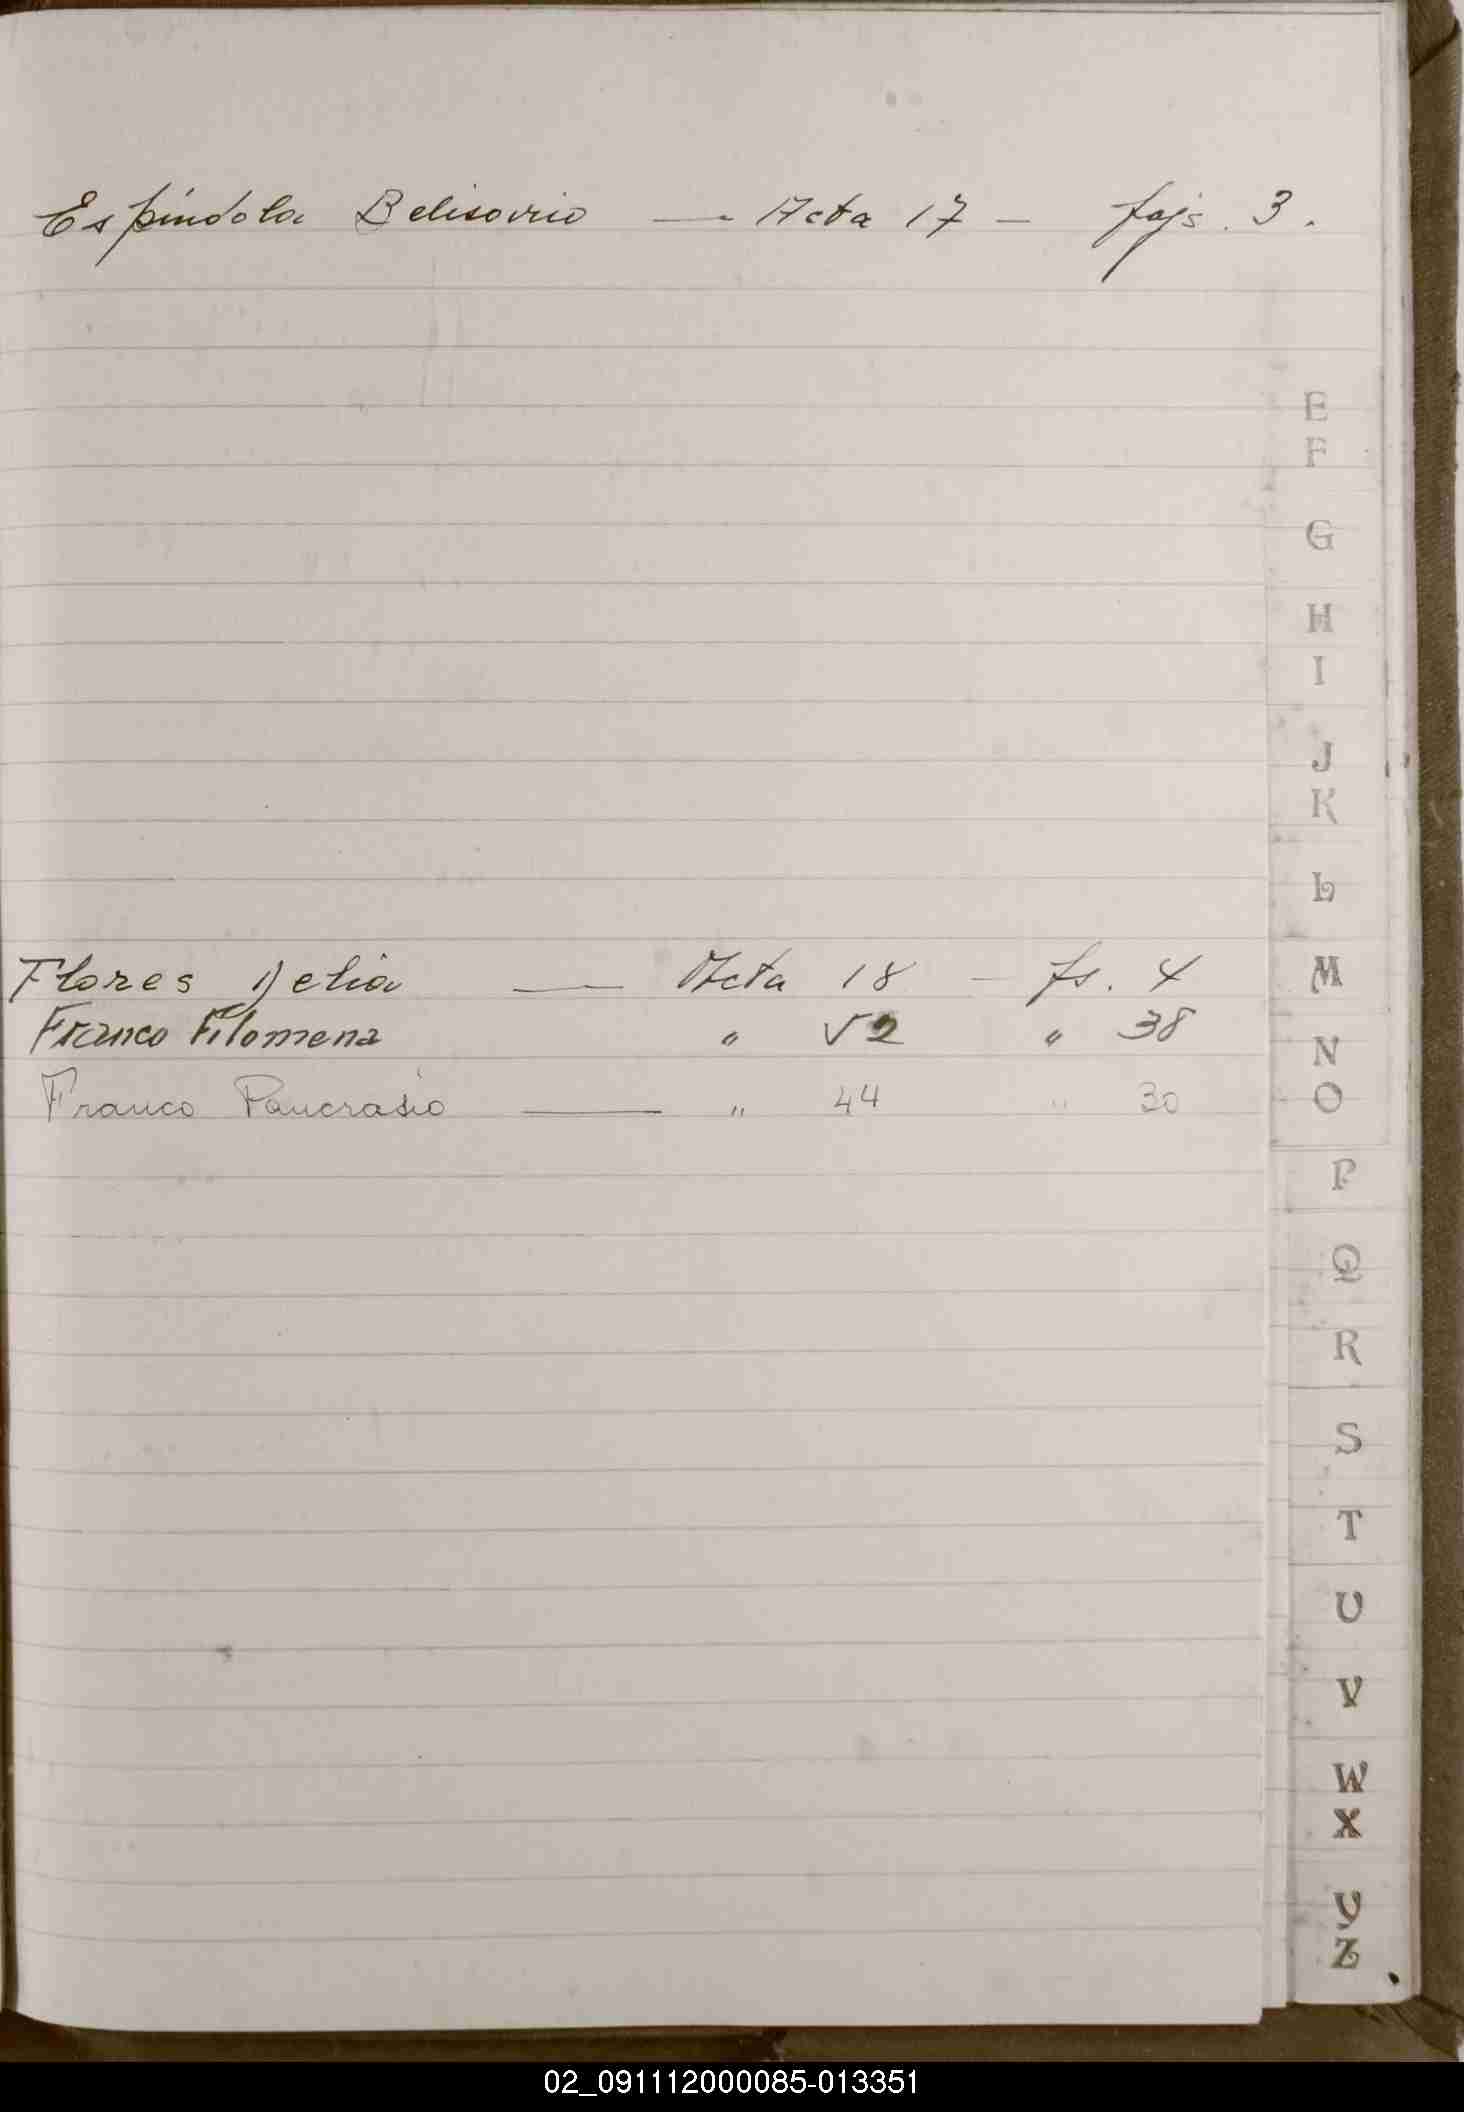 Espíndola Belisario — Acta 17 — fojs. 3.
E
F
G
H
I
J
K
L
Flores Delia — Acta 18 — fs. 4
M
Franco Filomena " 52 " 38
N
Franco Pancrasio — " 44 " 30
O
P
Q
R
S
T
U
V
W
X
Y
Z
02_091112000085-013351